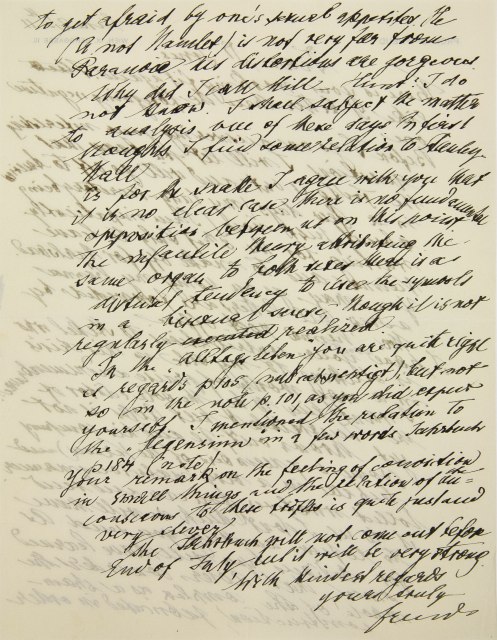 to get afraid by one's sexual appetites. He
(not Hamlet) is not very far from
Paranoia his distortions are gorgeous
Why did I call Hill Hunt: I do
not know. I shall subject the matter
to analysis one of these days. In first
thoughts I find some relation to
Hall
is for the snake I agree with you that
it is no clear case. There is no fundamental
opposition between us on this point
the infantile theory attributing the
same organ to both sexes there is a
natural tendency to use the symbols
in a bisexual sense, though it is not
regularly realized.
In the "Alltagsleben" you are quite right
as regards p 105 , but not
so in the note p. 101, as you did expect
yourself. I mentioned the relation to
the in a few words Jahrbuch
p 184 (note)
Your remark on the feeling of conviction
in small things and the relation of un-
conscious to these trifles is quite just and
very clever
The Jahrbuch will not come out before
End of July but it will be very strong
With kindest regards
yours truly
Freud